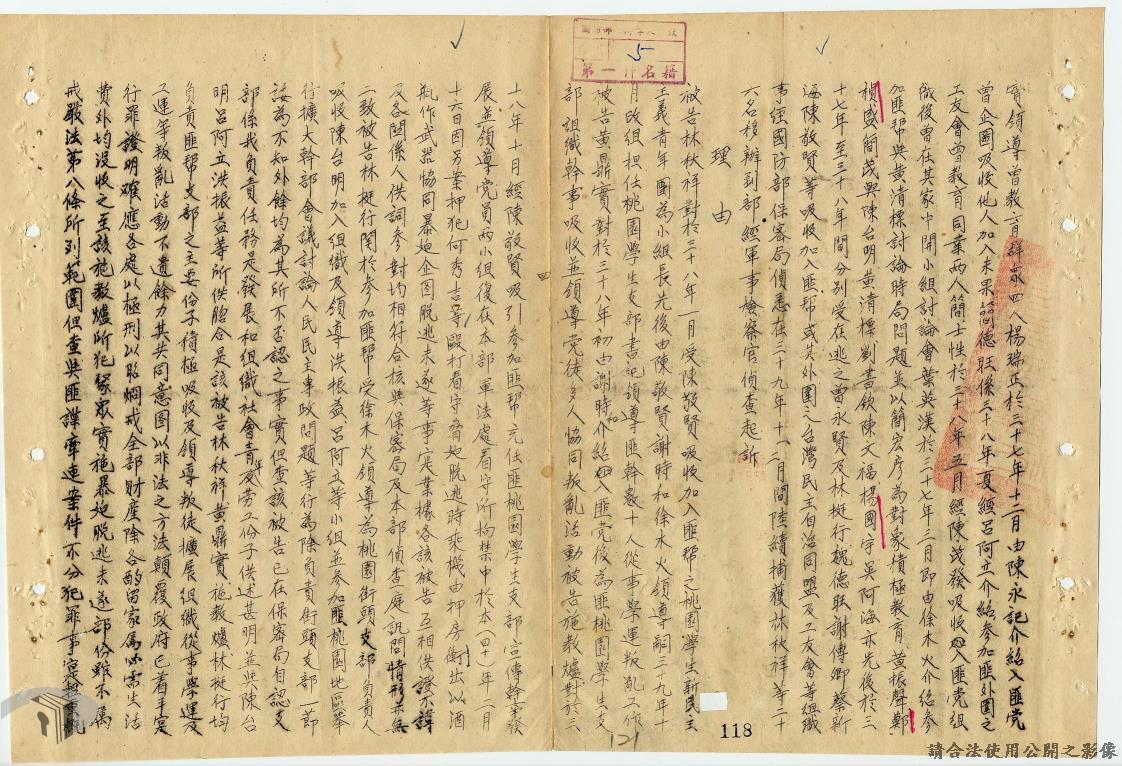 實領導曾教育群眾四人楊瑞正於三十七年十二月由陳永記介紹入匪黨
曾企圖吸收他人加入未果簡德旺係三十八年夏經呂阿立介紹參加匪外圍之
工友會曾教育同業兩人簡士性於三十八年五月經陳茂發吸收加入匪黨組
織後曾在其家中開小組討論會葉英漢於三十七年三月即由徐木火介紹參
加匪幫與黃清標討論時局問題並以簡宏彥為對象積極教育黃振聲鄭
禎盛簡茂興陳台明黃清標劉書欽陳天福楊國宇吳阿海亦先後於三
十七年至三十八年間分別受在逃之曾永賢及林挺行魏德旺謝傳卿蔡新
海陳敬賢等吸收加入匪幫或其外圍之台灣民主自治同盟及工友會等組織
事經國防部保密局偵悉在三十九年十一二月間陸續捕獲林秋祥等二十
六名移辦到部經軍事檢察官偵查起訴
理由
被告林秋祥對於三十八年一月受陳敬賢吸收加入匪幫之桃園學生新民主
主義青年團為小組長先後由陳敬賢謝時和徐木火領導嗣三十九年十
月改組担任桃園學生支部書記領導匪幹眾十人從事學運叛亂工作
被告黃鼎實對於三十八年初由謝時和介紹加入匪黨後為匪桃園學生支
部組織幹事吸收並領導黨徒多人協同叛亂活動被告施教爐對於三
十八年十月經陳敬賢吸引參加匪幫充任匪桃園學生支部宣傳幹事發
展並領導党員兩小組復在本部軍法處看守所拘禁中於本(四十)年二月
十六日因另案押犯何秀吉等毆打看守脅迫脫逃時乘機由押房衝出以酒
瓶作武器協同暴迫企圖脫逃未遂等事實業據各該被告互相供證不諱
及各関係人供詞參對均相符合核與保密局及本部偵查庭訊問情形亦無
二致被告林挺行関於參加匪幫受徐木火領導為桃園街頭支部負責人
吸收陳台明加入組織及領導洪振益呂阿立等小組並參加匪桃園地區舉
行擴大幹部會議討論人民民主專政問題等行為除負責街頭支部一節
諉為不知外餘均為其所不否認之事實但查該被告已在保密局自認支
部係我負責任務是發展和組織社會青年及勞工份子供述甚明並與陳台
明呂阿立洪振益等所供脗合是該被告林秋祥黃鼎實施教爐林挺行均
負責匪幫支部之主要份子積極吸收及領導叛徒擴展組織從事學運及
工運等叛亂活動不遺餘力其共同意图以非法之方法顛覆政府已着手實
行罪證明確應各處以極刑以昭烱戒全部財産除各酌留家屬必需生活
費外均沒收之至該施教爐所犯聚眾實施暴迫脫逃未遂部份雖不屬
戒嚴法第八條所列範圍但查與匪諜牽連案件不分犯罪事實
第一厅名籍
5
118
121
請合法使用公開之影像